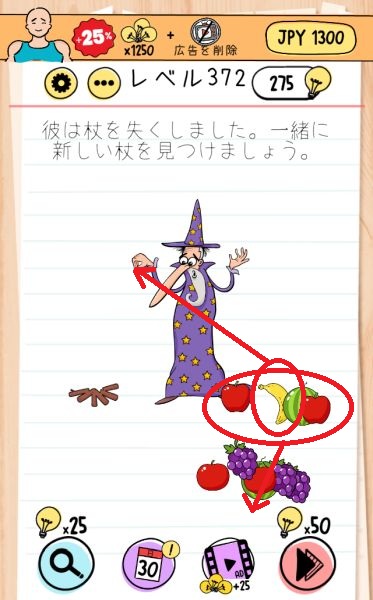 +25%
x1250
+
広告を削除
JPY 1300
レベル372
275
彼は杖を失くしました。一緒に
新しい杖を見つけましょう。
x25
x50
30
!
AD
+25